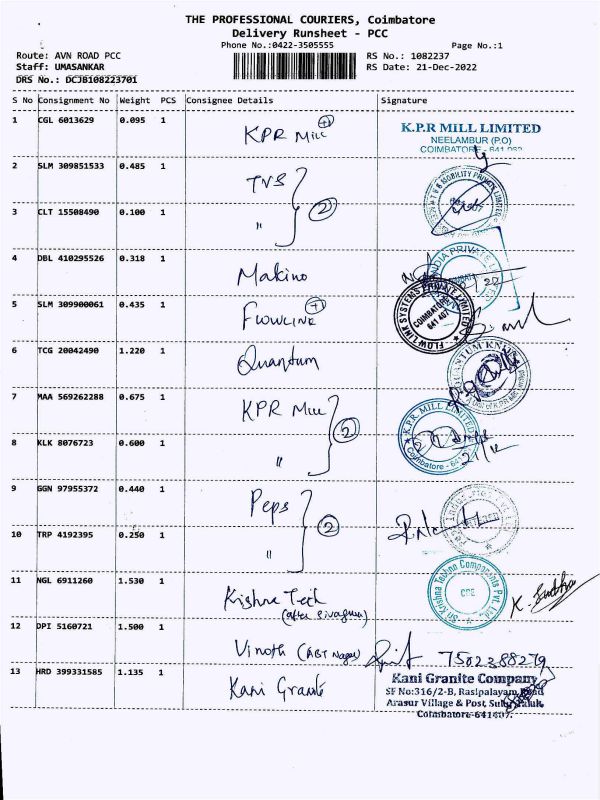 THE PROFESSIONAL COURIERS, Coimbatore
Delivery Runsheet - PCC
Phone No.:0422-3505555 Page No.:1
Route: AVN ROAD PCC RS No.: 1082237
Staff: UMASANKAR RS Date: 21-Dec-2022
DRS No.: DCJB108223701
S No Consignment No Weight PCS Consignee Details Signature
1 CGL 6013629 0.095 1 KPR Mill
K.P.R MILL LIMITED
NEELAMBUR (P.O)
COIMBATORE - 641 062
2 SLM 309851533 0.485 1 TVS
3 CLT 15508490 0.100 1 " 2
4 DBL 410295526 0.318 1 Makino
5 SLM 309900061 0.435 1 Flowlink
FLOW LINK SYSTEMS PRIVATE LIMITED
COIMBATORE
641 407
6 TCG 20042490 1.220 1 Quantum
QUANTUM KNITS
7 MAA 569262288 0.675 1 KPR Mill
K.P.R. MILL LIMITED
Coimbatore - 641
8 KLK 8076723 0.600 1 " 2
21/12
9 GGN 97955372 0.440 1 Peps
10 TRP 4192395 0.250 1 " 2
11 NGL 6911260 1.530 1 Krishna Tech
Sri Krishna Techno Components Pvt. Ltd
CBE
K. Sudha
12 DPI 5160721 1.500 1 Vinoth (ABT Nagar) 7502388279
13 HRD 399331585 1.135 1 Kani Granite
Kani Granite Company
SF No:316/2-B, Rasipalayam Road
Arasur Village & Post, Sulur Taluk,
Coimbatore-641407.